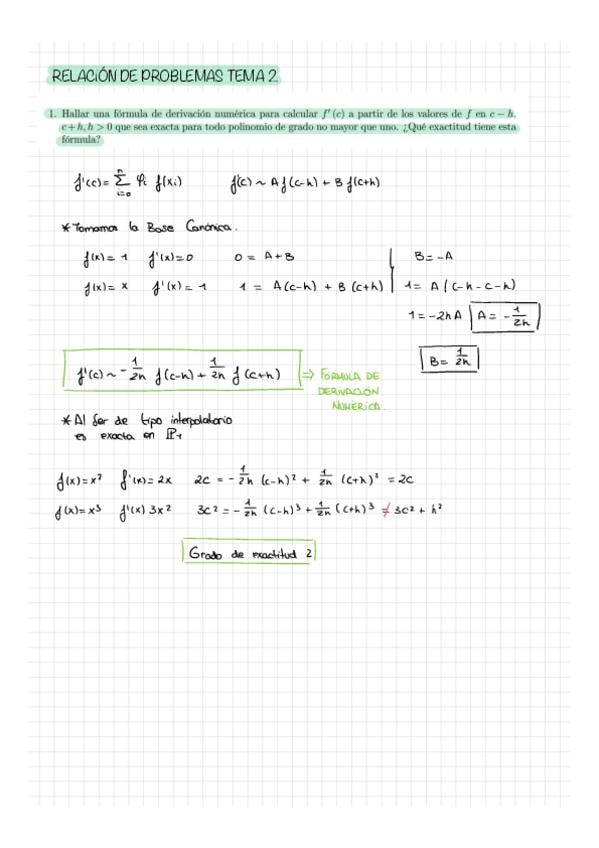 RELACIÓN DE PROBLEMAS TEMA 2
1. Hallar una fórmula de derivación numérica para calcular f'(c) a partir de los valores de f en c − h,
c + h, h > 0 que sea exacta para todo polinomio de grado no mayor que uno. ¿Qué exactitud tiene esta
fórmula?
f'(c) = Σ_{i=0}^{n} φi f(xi)    f(c) ~ A f(c-h) + B f(c+h)
* Tomamos la Base Canónica.
f(x) = 1   f'(x) = 0   0 = A + B   B = -A
f(x) = x   f'(x) = 1   1 = A(c-h) + B(c+h)   1 = A(c-h-c-h)
1 = -2hA   A = -1/2h
B = 1/2h
f'(c) ~ -1/2h f(c-h) + 1/2h f(c+h) ⇒ FÓRMULA DE
DERIVACIÓN
NUMÉRICA.
* Al ser de tipo interpolatorio
es exacta en ℙ1
f(x) = x²   f'(x) = 2x   2c = -1/2h (c-h)² + 1/2h (c+h)² = 2c
f(x) = x³   f'(x) 3x²   3c² = -1/2h (c-h)³ + 1/2h (c+h)³ ≠ 3c² + h²
Grado de exactitud 2